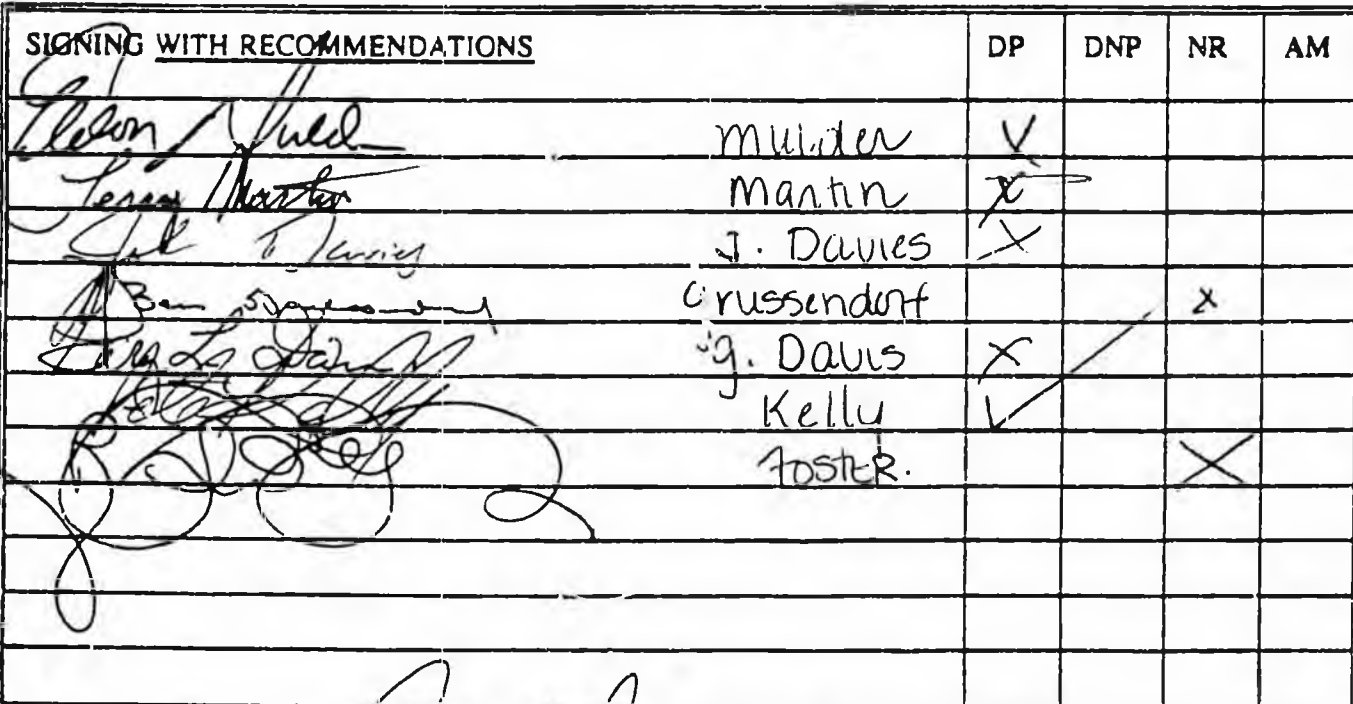 SIGNING WITH RECOMMENDATIONS DP DNP NR AM
Mulder X
Martin X
J. Davies X
Ben Grussendorf X
G. Davis X
Kelly ✓
FOSTER. X